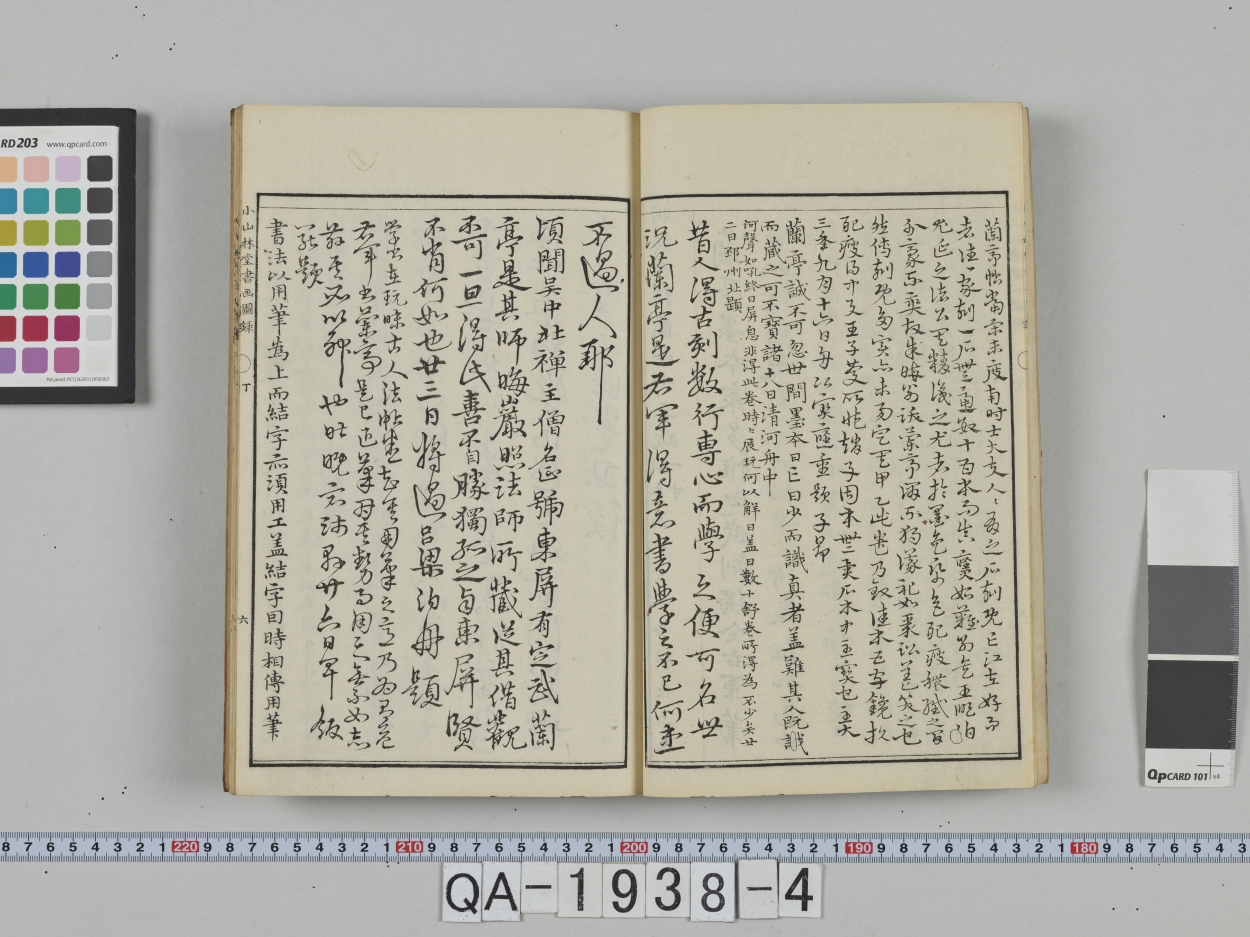 蘭亭帖當宋未度南時士大夫人人有之石刻既亡江左好事
者往往家刻一石無慮數十百本而真贗始難別矣王順伯
尤延之諸公其精識之尤者於墨色紙色肥瘦穠纖之間
分豪不爽故朱晦翁跋蘭亭謂不獨議禮如聚訟蓋笑之也
然傳刻既多實亦未易定其甲乙此卷乃致佳本五字鑱損
肥瘦得中與王子慶所藏趙子固本無異石本中至寶也至大
三年九月十六日舟次寶應重題子昂
蘭亭誠不可忽世間墨本日亡日少而識真者蓋難其人既識
而藏之可不寶諸十八日清河舟中
河聲如吼終日屏息非得此卷時時展玩何以解日蓋日數十舒卷所得為不少矣廿
二日邳州北題
昔人得古刻數行專心而學之便可名世
況蘭亭是右軍得意書學之不已何患
不過人耶
頃聞吳中北禪主僧名正號東屏有定武蘭
亭是其師晦巖照法師所藏從其借觀
不可一旦得此喜不自勝獨孤之與東屏賢
不肖何如也廿三日將過呂梁泊舟題
學書在玩味古人法帖悉知其用筆之意乃為有益
右軍書蘭亭是已退筆因其勢而用之無不如志
茲其所以神也昨晚宿沛縣廿六日早飯
罷題
書法以用筆為上而結字亦須用工蓋結字因時相傳用筆
小山林堂書画圖録 丁 六
RD203 www.qpcard.com
QPCARD 101 v4
8 7 6 5 4 3 2 1 220 9 8 7 6 5 4 3 2 1 210 9 8 7 6 5 4 3 2 1 200 9 8 7 6 5 4 3 2 1 190 9 8 7 6 5 4 3 2 1 180 9 8 7 6 5 4 3
QA-1938-4